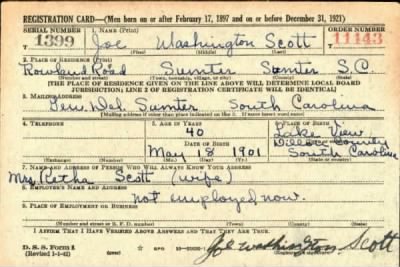 REGISTRATION CARD—(Men born on or after February 17, 1897 and on or before December 31, 1921)
SERIAL NUMBER 1. NAME (Print) ORDER NUMBER
1399 Joe Washington Scott 11143
(First) (Middle) (Last)
2. PLACE OF RESIDENCE (Print)
Rowland Road Sumter Sumter S.C.
(Number and street) (Town, township, village, or city) (County) (State)
[THE PLACE OF RESIDENCE GIVEN ON THE LINE ABOVE WILL DETERMINE LOCAL BOARD
JURISDICTION; LINE 2 OF REGISTRATION CERTIFICATE WILL BE IDENTICAL]
3. MAILING ADDRESS
Gen. Del. Sumter South Carolina
[Mailing address if other than place indicated on line 2. If same insert word same]
4. TELEPHONE 5. AGE IN YEARS 6. PLACE OF BIRTH
40 Lake View
DATE OF BIRTH Dillon County
May 18 1901 South Carolina
(Exchange) (Number) (Mo.) (Day) (Yr.) (State or country)
7. NAME AND ADDRESS OF PERSON WHO WILL ALWAYS KNOW YOUR ADDRESS
Mrs. Scott (wife)
8. EMPLOYER'S NAME AND ADDRESS
not employed now.
9. PLACE OF EMPLOYMENT OR BUSINESS
(Number and street or R. F. D. number) (Town) (County) (State)
I AFFIRM THAT I HAVE VERIFIED ABOVE ANSWERS AND THAT THEY ARE TRUE.
D. S. S. Form 1
(Revised 1-1-42) (over) Joe Washington Scott